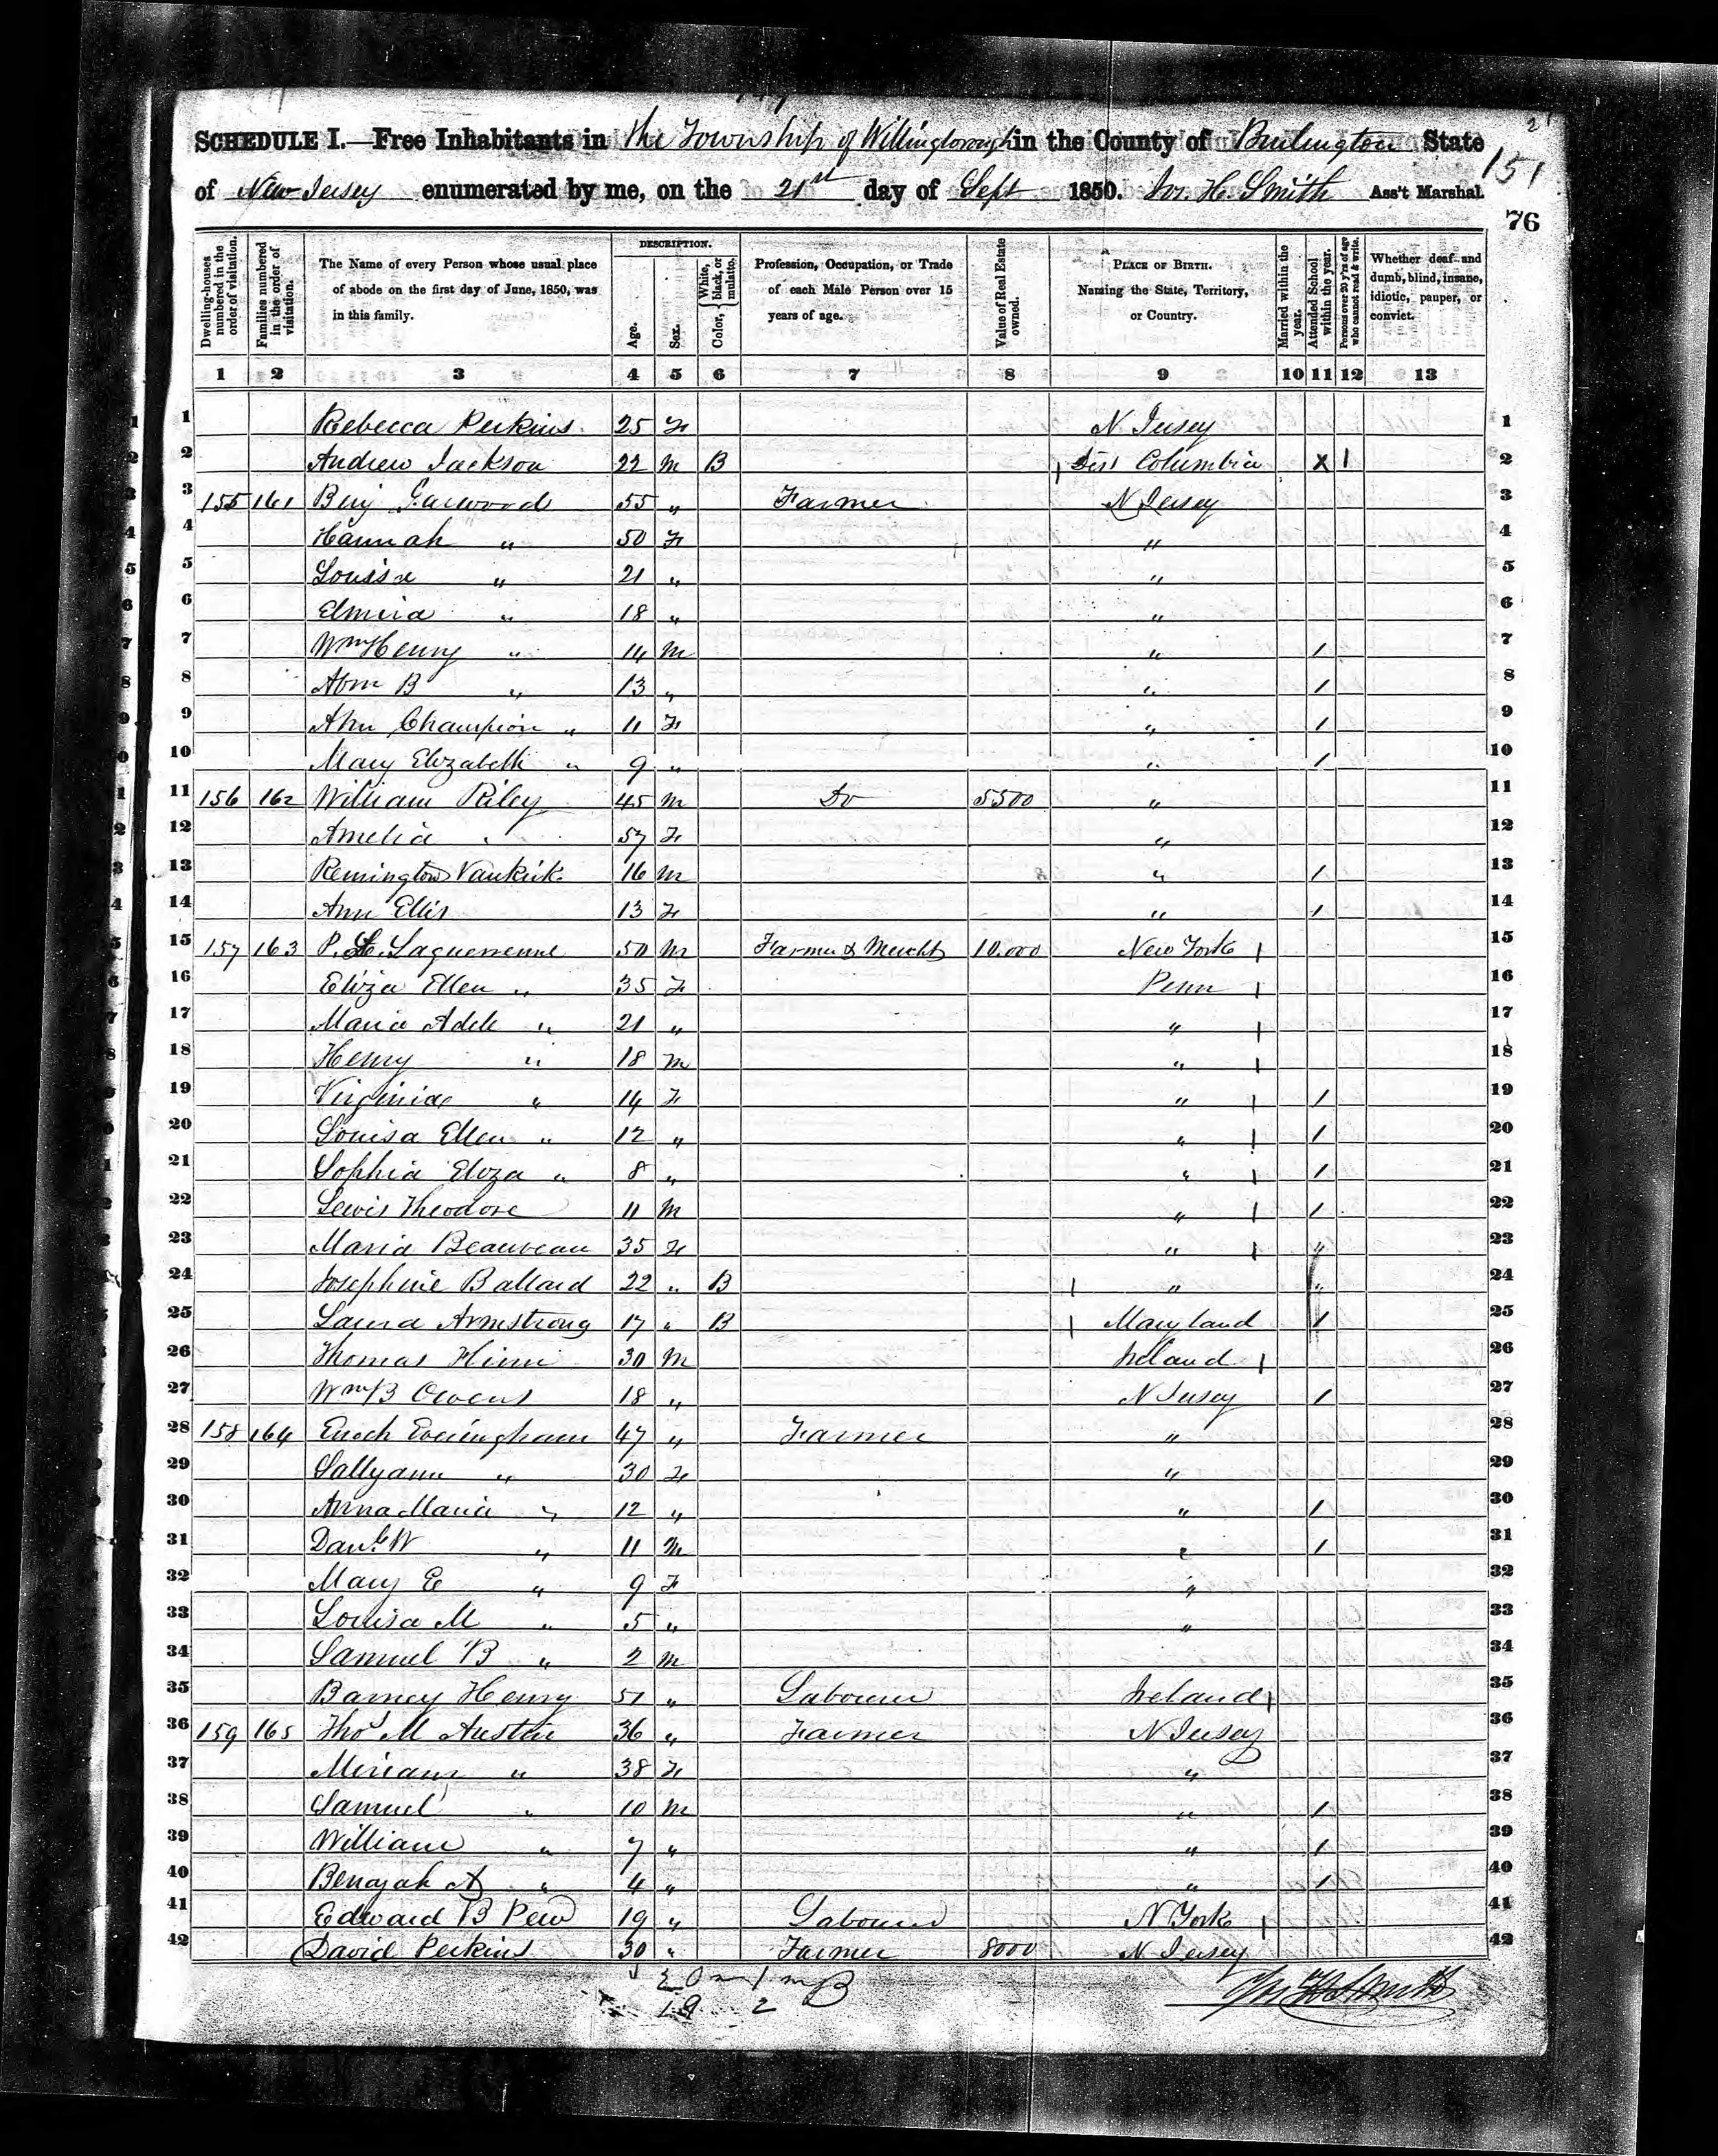 2
SCHEDULE I.—Free Inhabitants in the Township of Willingborough in the County of Burlington State
151
of New Jersey enumerated by me, on the 21st day of Sept 1850. H. Smith Ass't Marshal.
76
Dwelling-houses numbered in the order of visitation.
Families numbered in the order of visitation.
The Name of every Person whose usual place of abode on the first day of June, 1850, was in this family.
DESCRIPTION.
Age.
Sex.
Color, White, black, or mulatto.
Profession, Occupation, or Trade of each Male Person over 15 years of age.
Value of Real Estate owned.
PLACE OF BIRTH. Naming the State, Territory, or Country.
Married within the year.
Attended School within the year.
Persons over 20 y'rs of age who cannot read & write.
Whether deaf and dumb, blind, insane, idiotic, pauper, or convict.
1 2 3 4 5 6 7 8 9 10 11 12 13
1 Rebecca Perkins 25 F N Jersey 1
2 Andrew Jackson 22 M B Dis Columbia X 1 2
3 155 161 Benj Garwood 55 " Farmer N Jersey 3
4 Hannah " 50 F " 4
5 Louisa " 21 " " 5
6 Elmira " 18 " " 6
7 Wm Henry " 14 M " 1 7
8 Abm B " 13 " " 1 8
9 Ann Champion " 11 F " 1 9
10 Mary Elizabeth " 9 " " 1 10
11 156 162 William Riley 45 M Do 5500 " 11
12 Amelia " 57 F " 12
13 Remington Vankirk 16 M " 1 13
14 Ann Ellis 13 F " 1 14
15 157 163 P. Laguerrenne 50 M Farmer & Mercht 10.000 New York 15
16 Eliza Ellen " 35 F Penn 16
17 Maria Adele " 21 " " 17
18 Henry " 18 M " 18
19 Virginia " 14 F " 1 19
20 Louisa Ellen " 12 " " 1 20
21 Sophia Eliza " 8 " " 1 21
22 Lewis Theodore 11 M " 1 22
23 Maria Beauveau 35 F " 23
24 Josephine Ballard 22 " B " 24
25 Laura Armstrong 17 " B Maryland 1 25
26 Thomas 30 M Ireland 26
27 Wm B Owens 18 " N Jersey 1 27
28 158 164 Enoch Everingham 47 " Farmer " 28
29 Sallyann " 30 F " 29
30 Anna Maria " 12 " " 1 30
31 Danl W " 11 M " 1 31
32 Mary E " 9 F " 32
33 Louisa M " 5 " " 33
34 Samuel B " 2 M " 34
35 Barney Henry 51 " Labourer Ireland 35
36 159 165 Thos M Austin 36 " Farmer N Jersey 36
37 Miriam " 38 F " 37
38 Samuel " 10 M " 1 38
39 William " 7 " " 1 39
40 Benajah A " 4 " " 1 40
41 Edward B Pew 19 " Labourer N York 41
42 David Perkins 30 " Farmer 8000 N Jersey 42
19 2
H Smith